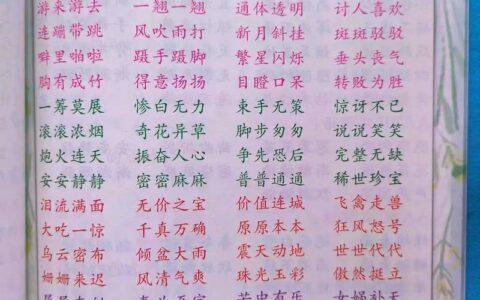 游来游去 一翘一翘 通体透明 讨人喜欢
连蹦带跳 风吹雨打 新月斜挂 斑斑驳驳
噼里啪啦 蹑手蹑脚 繁星闪烁 垂头丧气
胸有成竹 得意扬扬 目瞪口呆 转败为胜
一筹莫展 惨白无力 束手无策 惊讶不已
滚滚浓烟 奇花异草 脚步匆匆 说说笑笑
炮火连天 振奋人心 争先恐后 完整无缺
安安静静 密密麻麻 普普通通 稀世珍宝
泪流满面 无价之宝 价值连城 飞禽走兽
大吃一惊 千真万确 原原本本 狂风怒号
乌云密布 倾盆大雨 震天动地 世世代代
姗姗来迟 风清气爽 珠光玉彩 傲然挺立